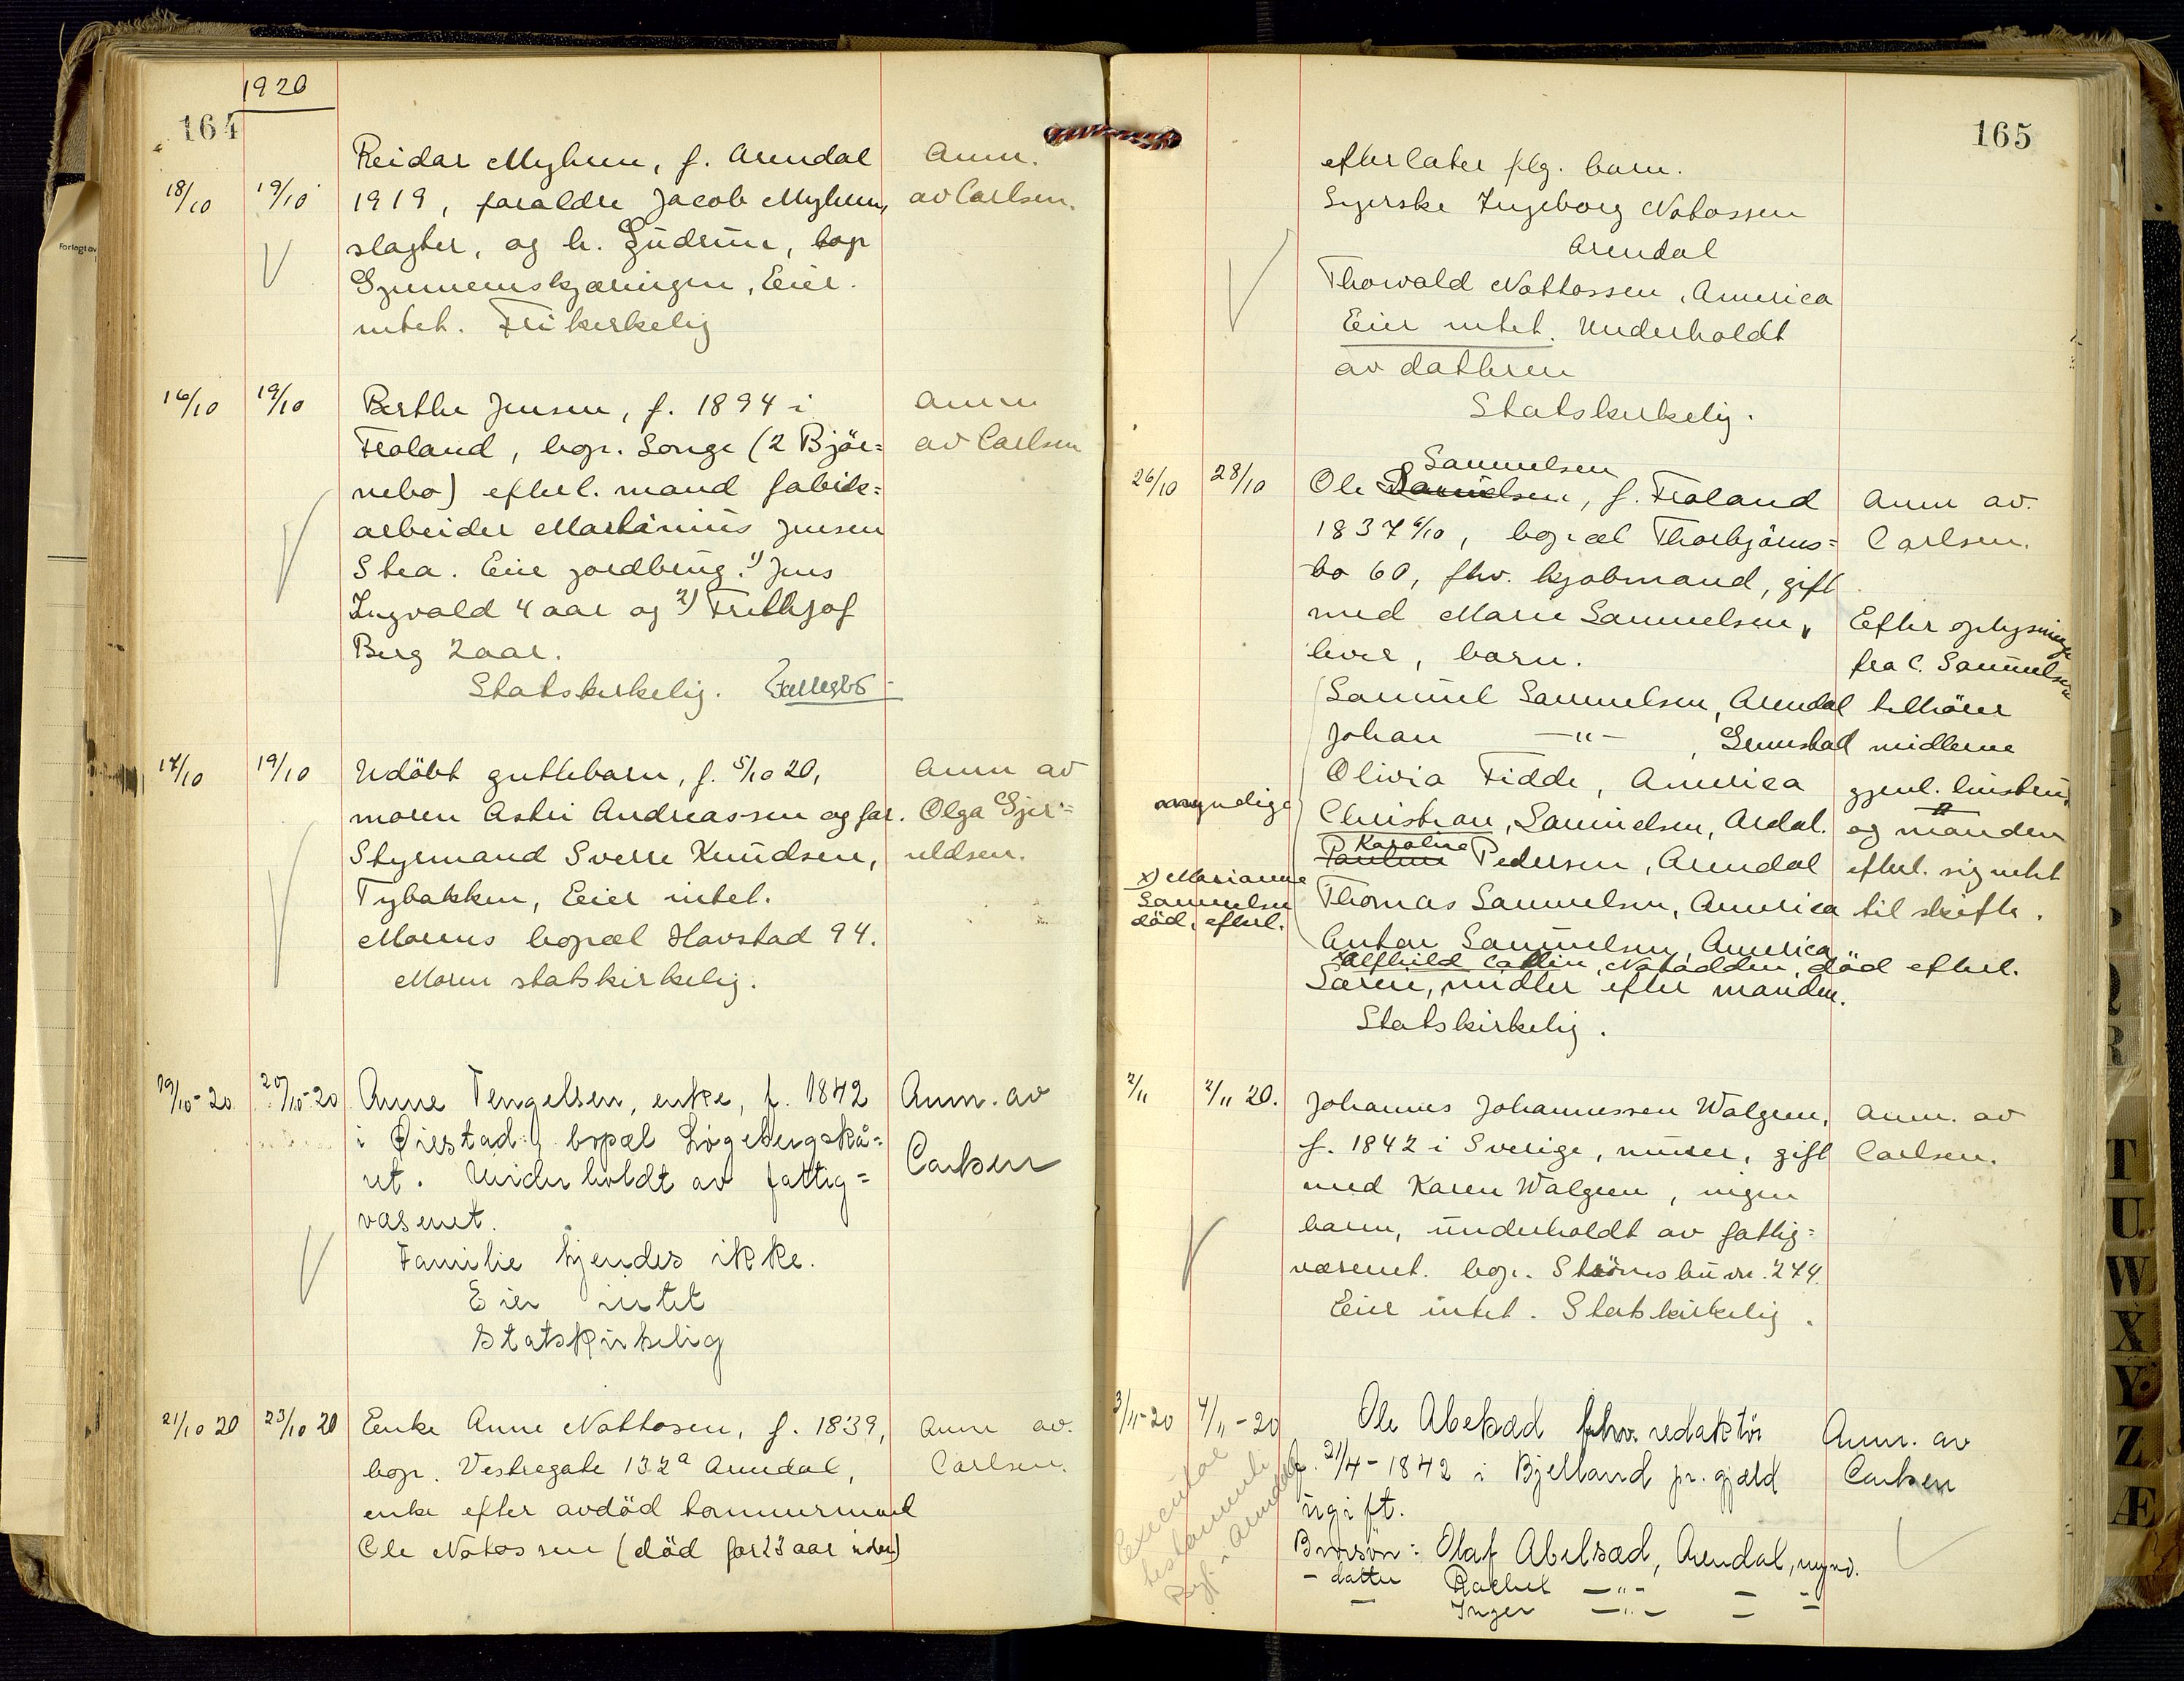 1920
164
Reidar Myhren, f. Arendal Anm.
18/10 19/10 1919, foraldre Jacob Myhren, av Carlsen.
slagter, og h. Gudrun, bop
Gjennemskjæringen, Eier.
intet. Frikirkelig
16/10 19/10 Berthe Jensen, f. 1894 i Anm
Froland, bop. Songe (2 Björ= av Carlsen
nebo) efterl. mand fabrik=
arbeider Martinius Jensen
Stea. Eier jordbrug. 1) Jens
Ingvald 4 aar og 2) Frithjof
Berg 2 aar.
Statskirkelig.
17/10 19/10 Udöbt guttebarn, f. 5/10 20, Anm av
moren Astri Andreassen og far. Olga Gjer=
Styrmand Sverre Knudsen, uldsen.
Tybakken, Eier intet.
Morens bopæl Havstad 94.
Moren statskirkelig.
19/10-20 20/10-20 Anne Tengelsen, enke, f. 1842 Anm. av
i Øiestad, bopæl Løgebergskå= Carlsen
ret. Underholdt av fattig=
væsenet.
Familie kjendes ikke.
Eier intet
Statskirkelig
21/10 20 23/10 20 Enke Anne Nottosen, f. 1839, Anm av.
bop. Vestregate 132a Arendal, Carlsen.
enke efter avdöd tømmermand
Ole Notossen (död for 23 aar siden)
165
efterlater flg. barn.
Syerske Ingeborg Notossen
Arendal
Thorvald Nottossen, America
Eier intet. Underholdt
av datteren
Statskirkelig.
Samuelsen
26/10 28/10 Ole Danielsen, f. Froland Anm av.
1837 6/10, bopæl Thorbjörns= Carlsen.
bo 60, fhv. kjøbmand, gift
med Maren Samuelsen, Efter oplysning
lever, barn. fra C. Samuelsen
Samuel Samuelsen, Arendal tilhörer
Johan —"— , Grimstad midlerne
Olivia Fidde, America gjenl. hustru,
myndige Christian, Samuelsen, Ardal. og manden
Karoline
Pauline Pedersen, Arendal efterl. sig intet
x) Marianne
Samuelsen Thomas Samuelsen, America til skifte.
död, efterl.
Anton Samuelsen, America
x Alfhild Catlin, Notodden, död efterl.
Særeie, midler efter manden.
Statskirkelig.
2/11 2/11 20. Johannes Johannessen Walgren, Anm. av
f. 1842 i Sverige, murer, gift Carlsen.
med Karen Walgren, ingen
barn, underholdt av fattig=
væsenet. bop. Strömsbu nr. 274.
Eier intet. Statskirkelig.
3/11-20 4/11-20 Ole Abelsæd fhv. redaktör Anm. av
f. 21/4-1842 i Bjelland pr. gjæld Carlsen
ugift.
Brorsön: Olaf Abelsæd, Arendal, mynd.
- datter Rachel —"— — "
— Inger —"— — "
Executor
testamenti
i Arendal
Forlagt av
Q
R
T
U
W
X
Y
Z
Æ